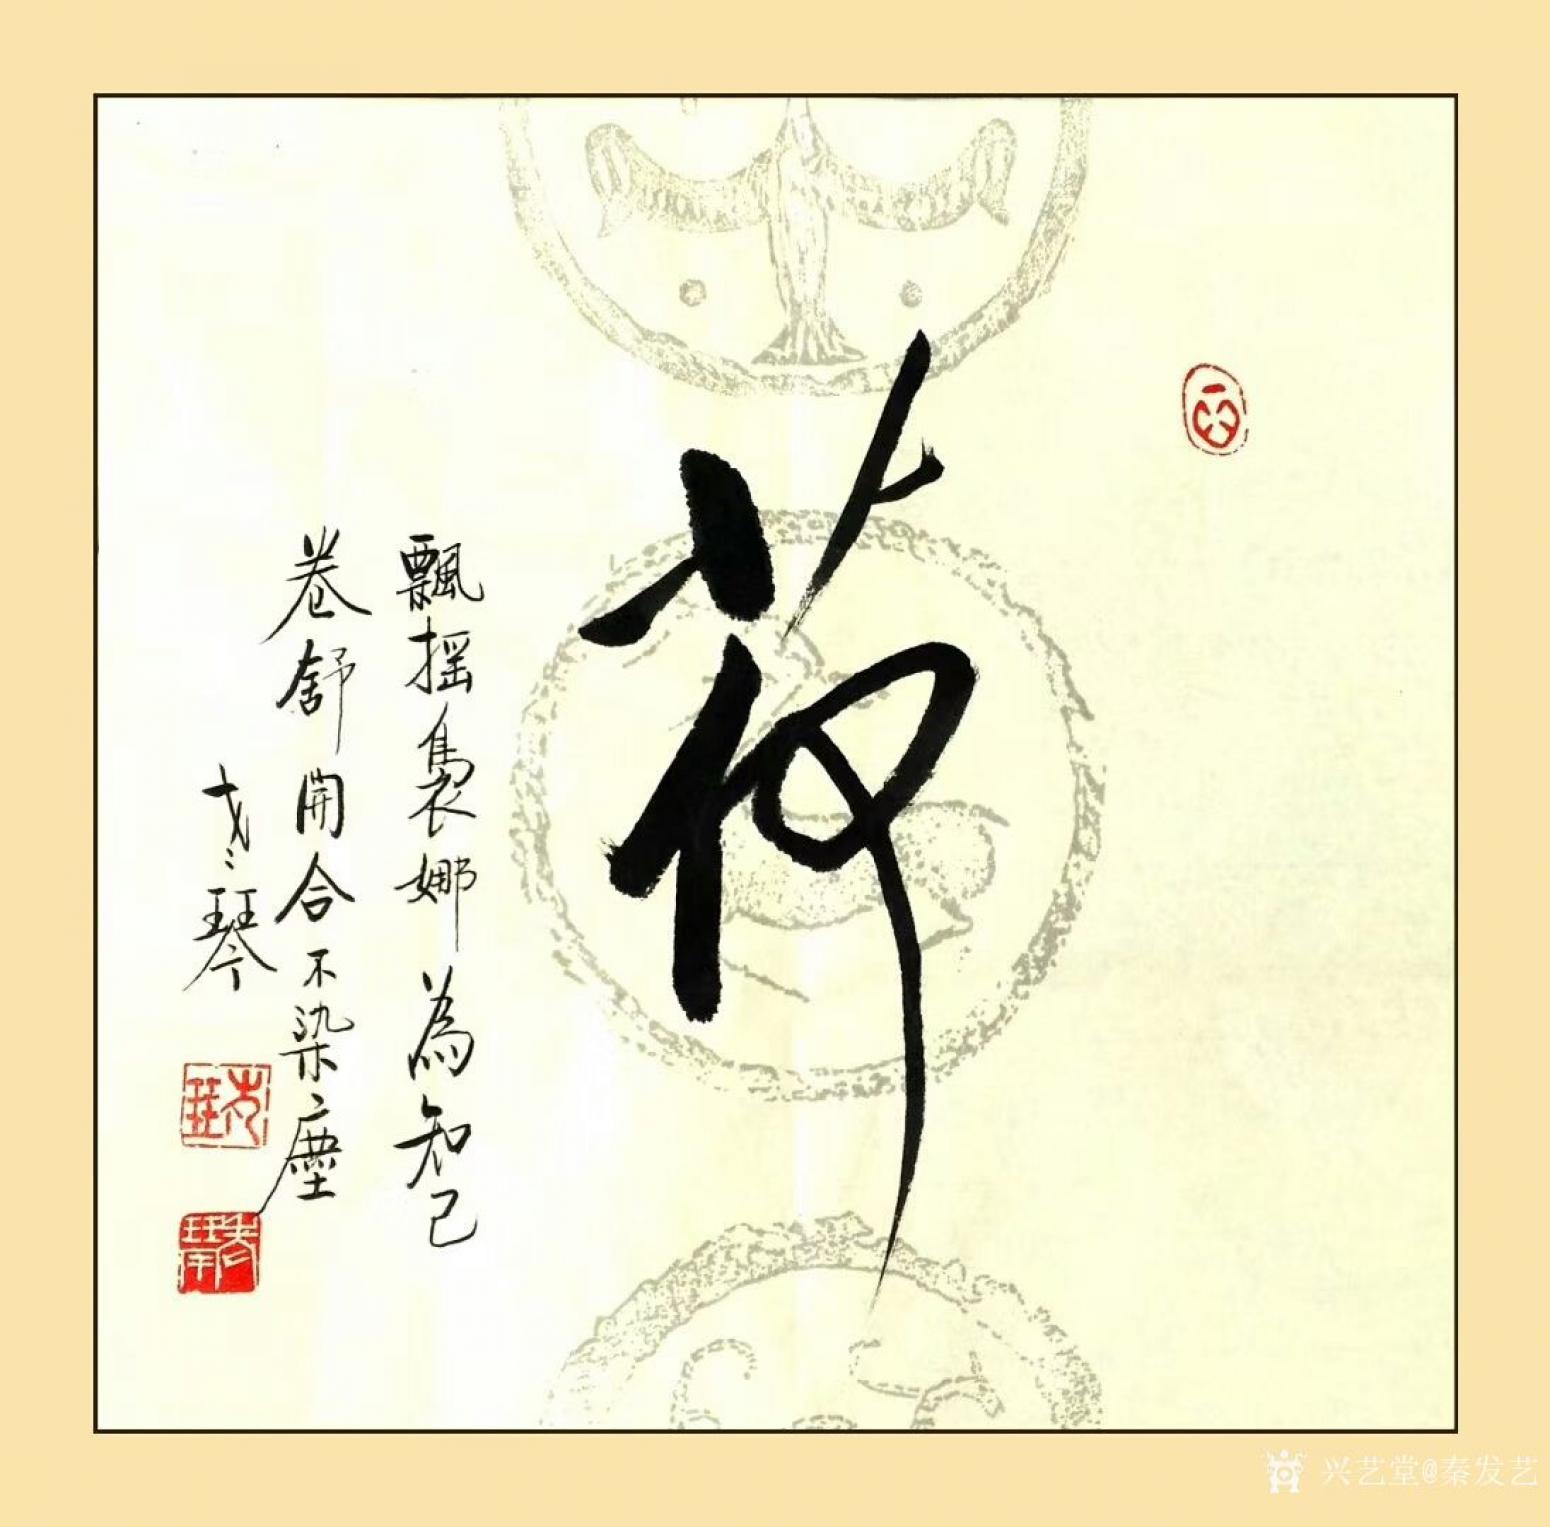 荷
飄摇裊娜為知己
卷舒開合不染塵
琴
兴艺堂@秦发艺